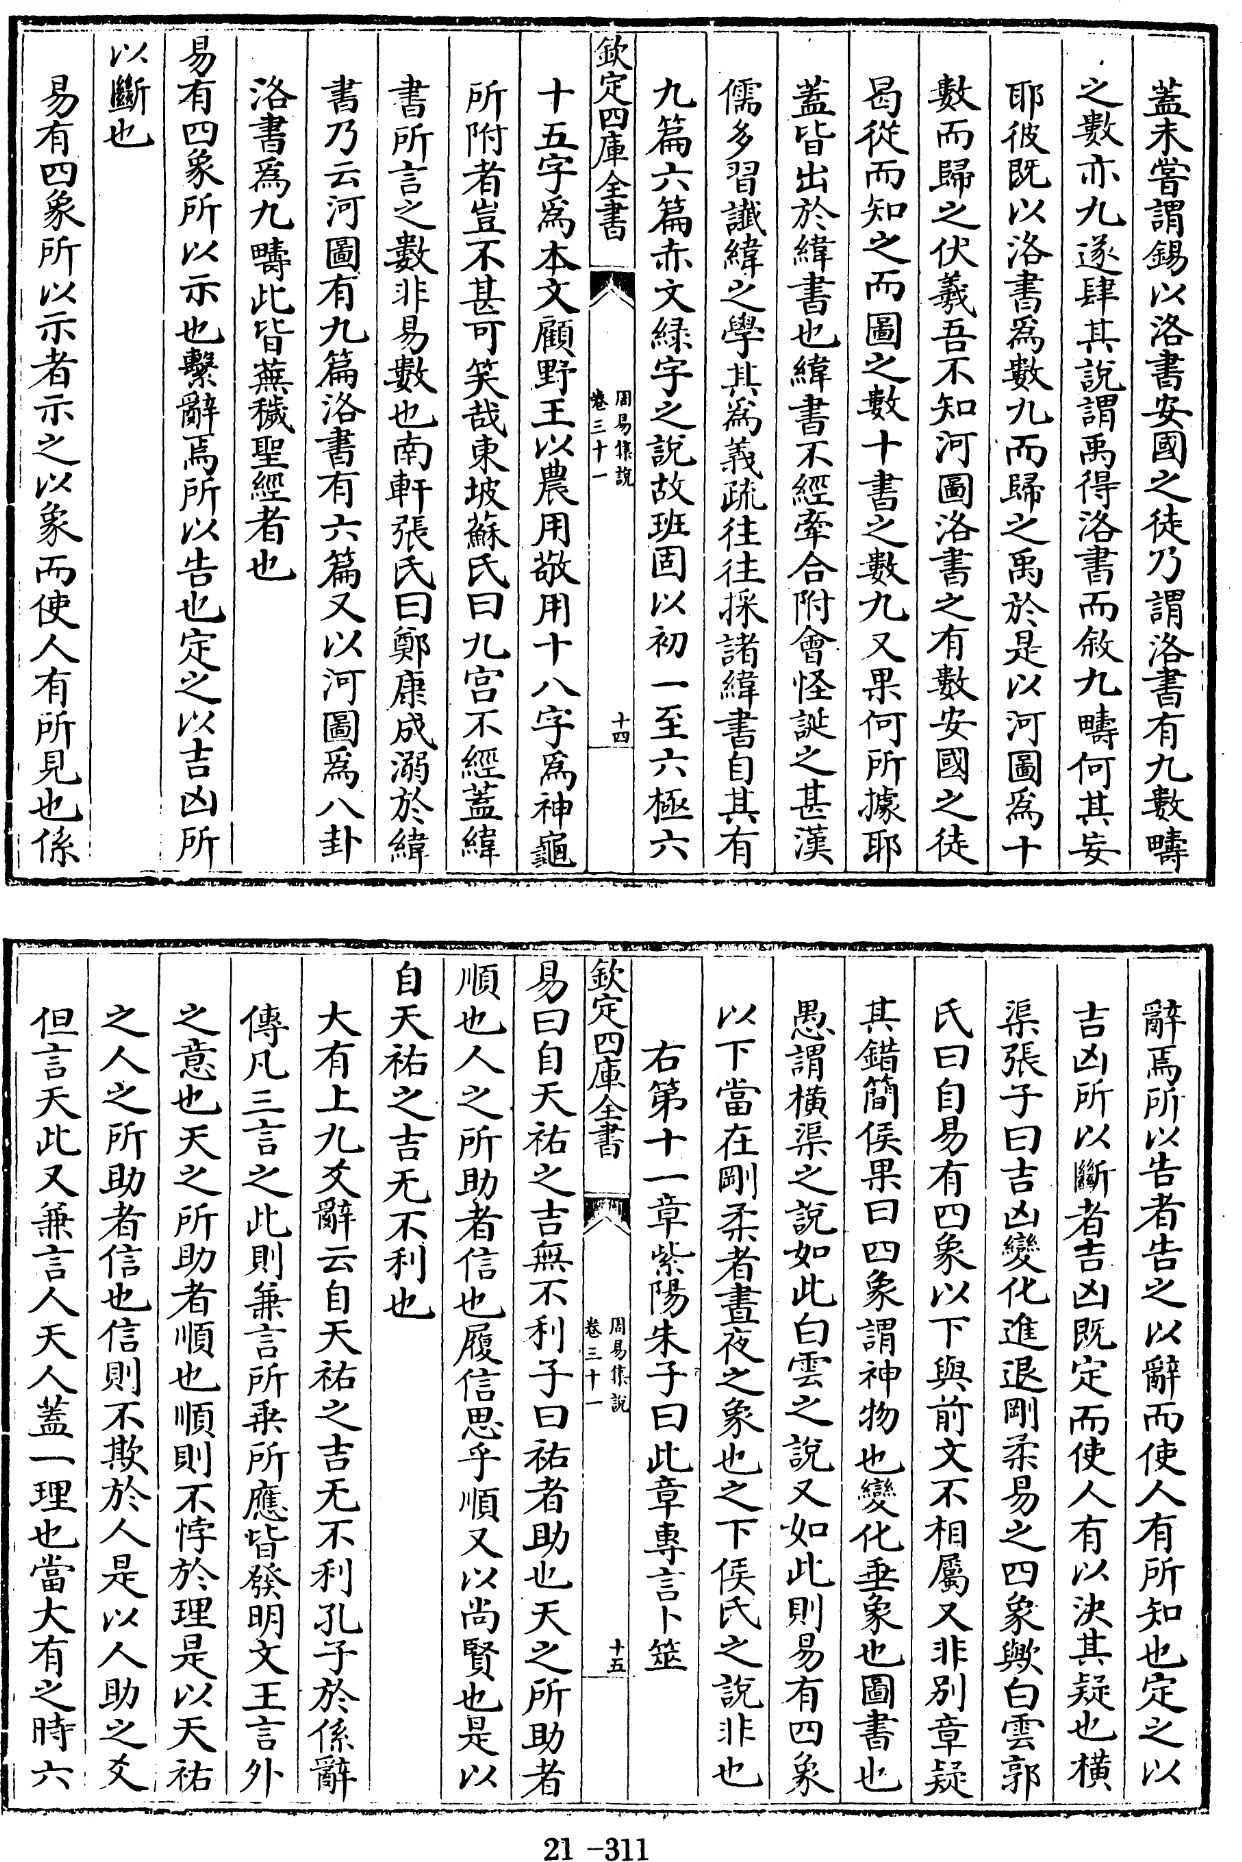 蓋未嘗謂錫以洛書安國之徒乃謂洛書有九數疇
之數亦九遂肆其說謂禹得洛書而敘九疇何其妄
耶彼既以洛書爲數九而歸之禹於是以河圖爲十
數而歸之伏羲吾不知河圖洛書之有數安國之徒
曷從而知之而圖之數十書之數九又果何所據耶
蓋皆出於緯書也緯書不經牽合附會怪誕之甚漢
儒多習讖緯之學其爲義疏往往採諸緯書自其有
九篇六篇赤文緑字之說故班固以初一至六極六
欽定四庫全書
周易集說
卷三十一
十四
十五字爲本文顧野王以農用敬用十八字爲神龜
所附者豈不甚可笑哉東坡蘇氏曰九宮不經蓋緯
書所言之數非易數也南軒張氏曰鄭康成溺於緯
書乃云河圖有九篇洛書有六篇又以河圖爲八卦
洛書爲九疇此皆蕪穢聖經者也
易有四象所以示也繫辭焉所以告也定之以吉凶所
以斷也
易有四象所以示者示之以象而使人有所見也係
辭焉所以告者告之以辭而使人有所知也定之以
吉凶所以斷者吉凶既定而使人有以決其疑也橫
渠張子曰吉凶變化進退剛柔易之四象歟白雲郭
氏曰自易有四象以下與前文不相屬又非別章疑
其錯簡侯果曰四象謂神物也變化垂象也圖書也
愚謂橫渠之說如此白雲之說又如此則易有四象
以下當在剛柔者晝夜之象也之下侯氏之說非也
右第十一章紫陽朱子曰此章專言卜筮
欽定四庫全書
周易集說
卷三十一
十五
易曰自天祐之吉無不利子曰祐者助也天之所助者
順也人之所助者信也履信思乎順又以尚賢也是以
自天祐之吉无不利也
大有上九爻辭云自天祐之吉无不利孔子於係辭
傳凡三言之此則兼言所乗所應皆發明文王言外
之意也天之所助者順也順則不悖於理是以天祐
之人之所助者信也信則不欺於人是以人助之爻
但言天此又兼言人天人蓋一理也當大有之時六
21-311